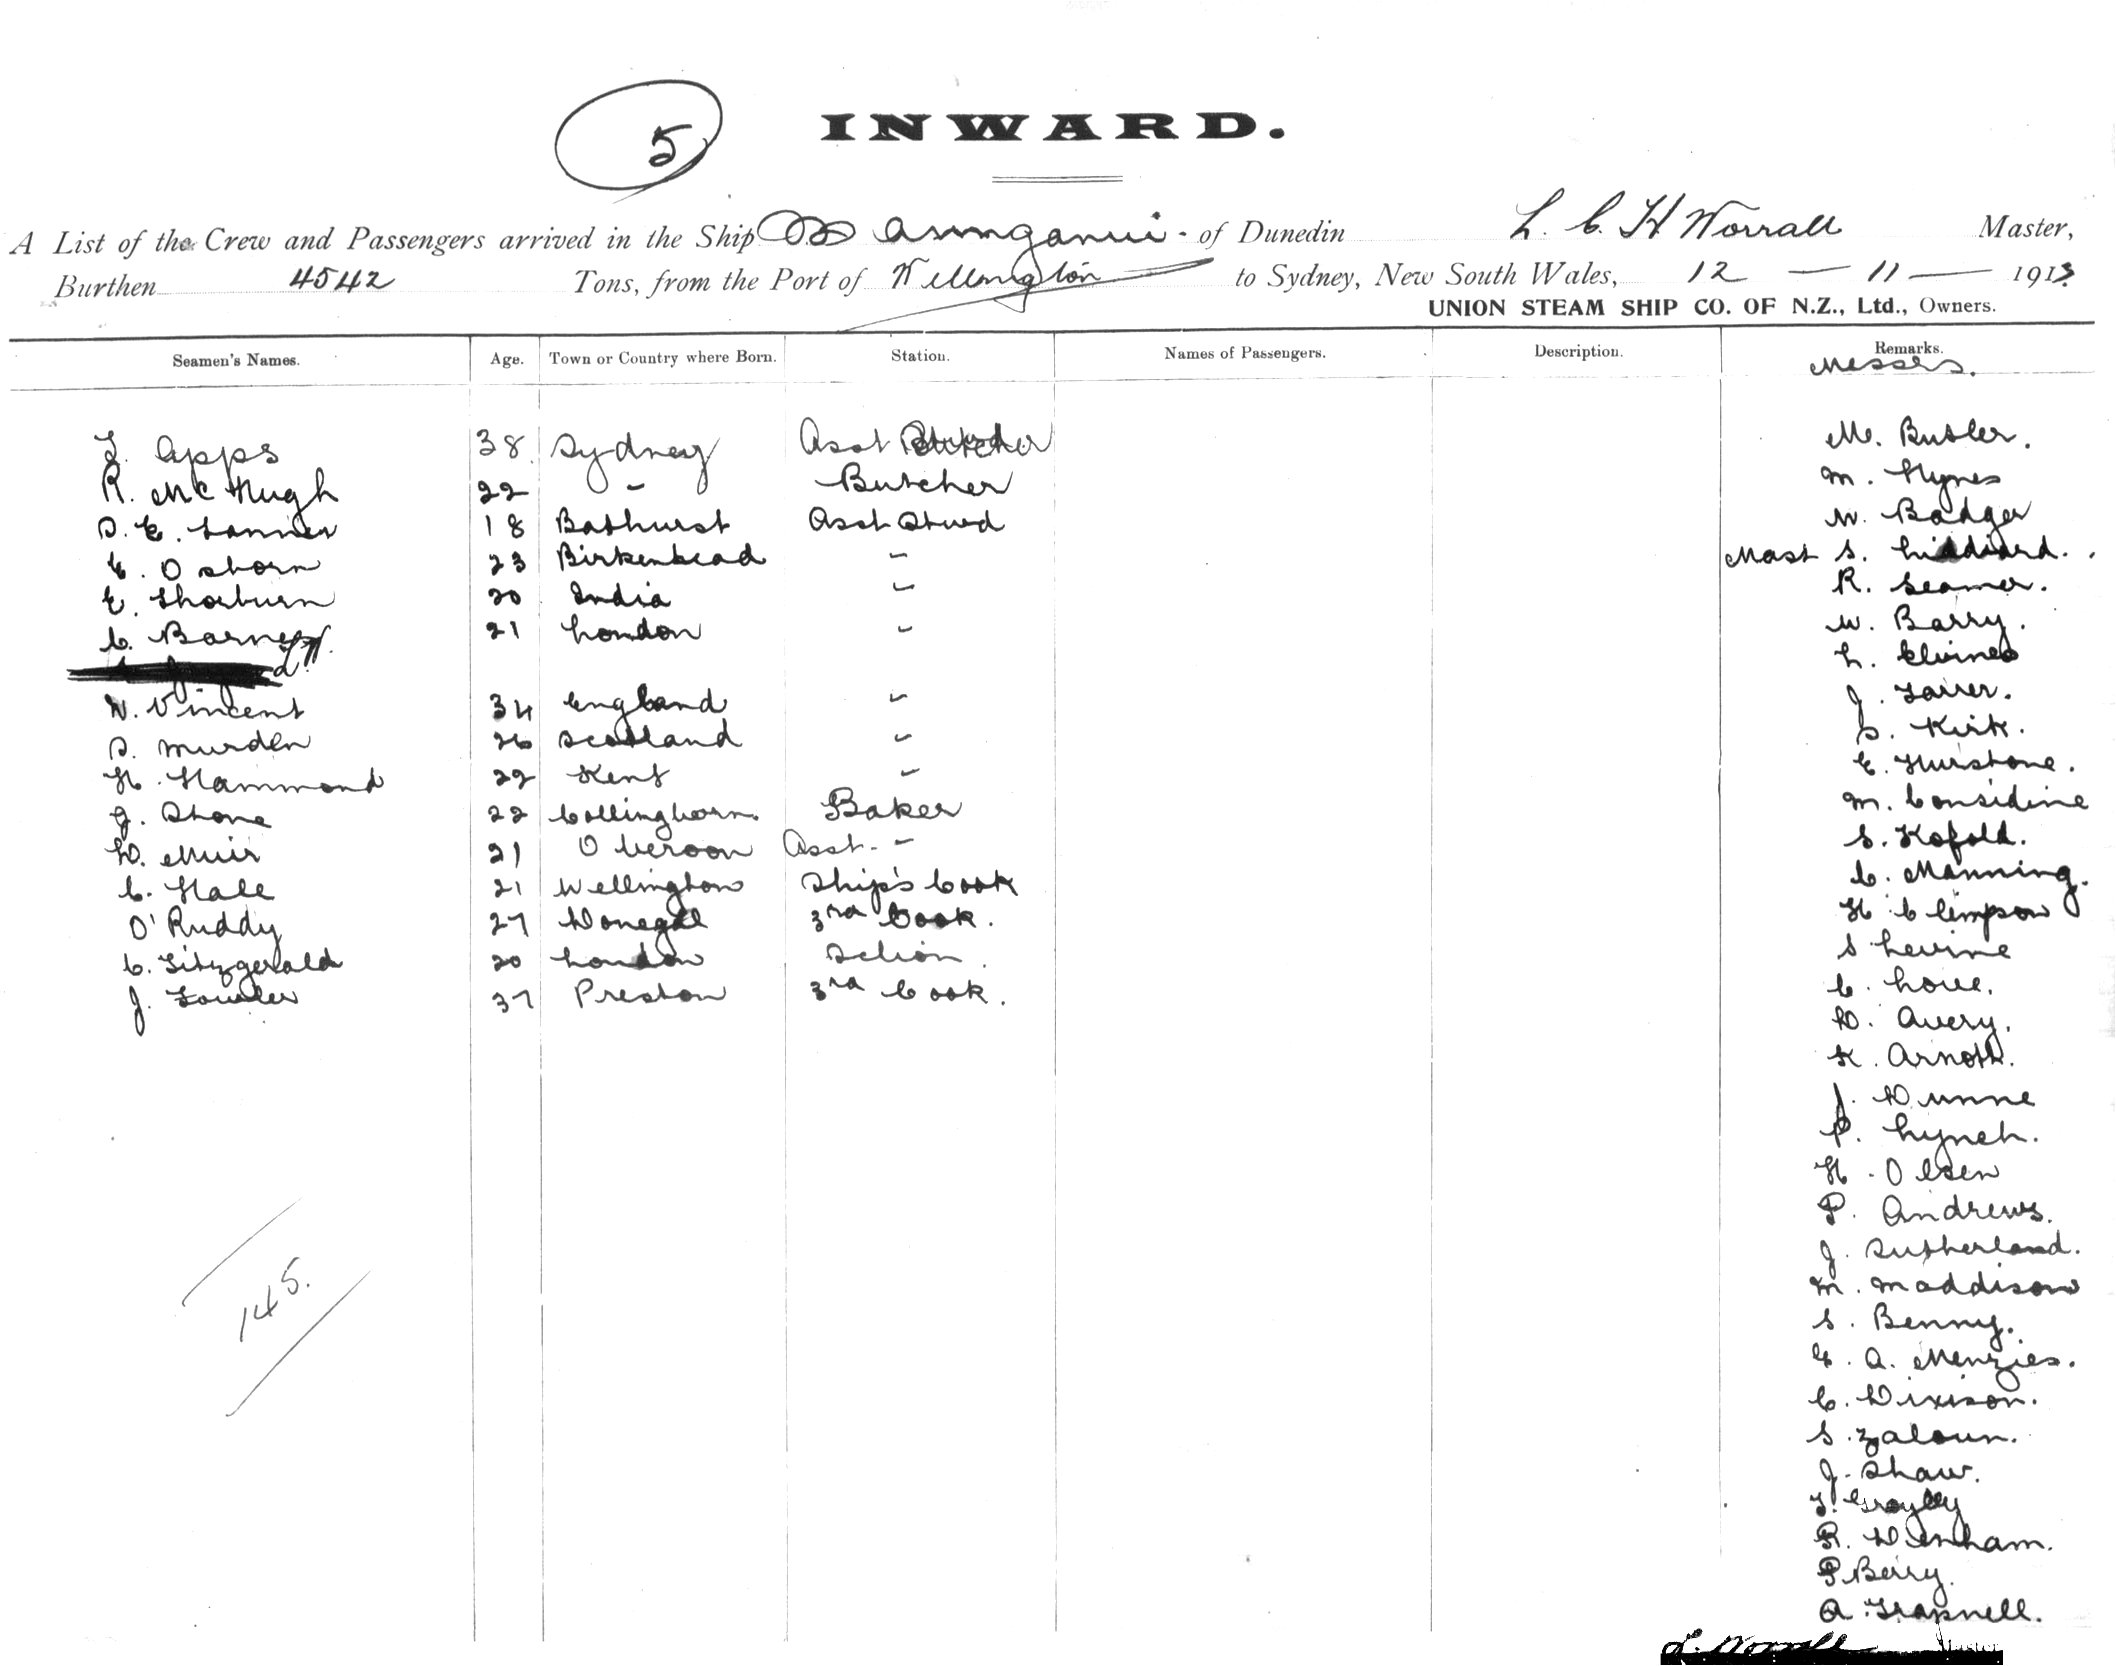 5
INWARD.
A List of the Crew and Passengers arrived in the Ship Maunganui - of Dunedin L. C. H Worrall Master,
Burthen 4542 Tons, from the Port of Wellington to Sydney, New South Wales, 12 — 11 — 1913
UNION STEAM SHIP CO. OF N.Z., Ltd., Owners.
Seamen's Names. Age. Town or Country where Born. Station. Names of Passengers. Description. Remarks.
Messrs.
F. Apps 38. Sydney Asst Butcher
R. McHugh 22 " Butcher
S. E. Lanner 18 Bathurst Asst Stwd
E. Osborn 23 Birkenhead "
E. Thorburn 20 India "
C. Barnett. 21 London "
W. Vincent 34 England "
S. Murden 26 Scotland "
H. Hammond 22 Kent "
J. Stone 22 Collingborn. Baker
D. Muir 21 Oberoon Asst. "
C. Hale 21 Wellington Ship's Cook
O'Ruddy 27 Donegal 3rd Cook.
C. Fitzgerald 20 London Sclion
J. Fowler 37 Preston 3rd Cook.
M. Butler.
M. Hynes
W. Badger
Mast S. Liddiard.
R. Seamer.
W. Barry.
L. Elvines
J. Farrer.
S. Kirk.
E. Hurstone.
M. Considine
S. Kofold.
C. Manning.
H. Climpson
S Levine
C. Lowe.
D. Avery.
K. Arnott.
J. Dunne
P. Lynch.
H. Olsen
P. Andrews.
J. Sutherland.
M. Maddison
S. Benny.
E. A. Menzies.
C. Dixison.
S. Zaloun.
J. Shaw.
R. Denham.
P Berry.
A. Trapnell.
145.
L. Worrall Master